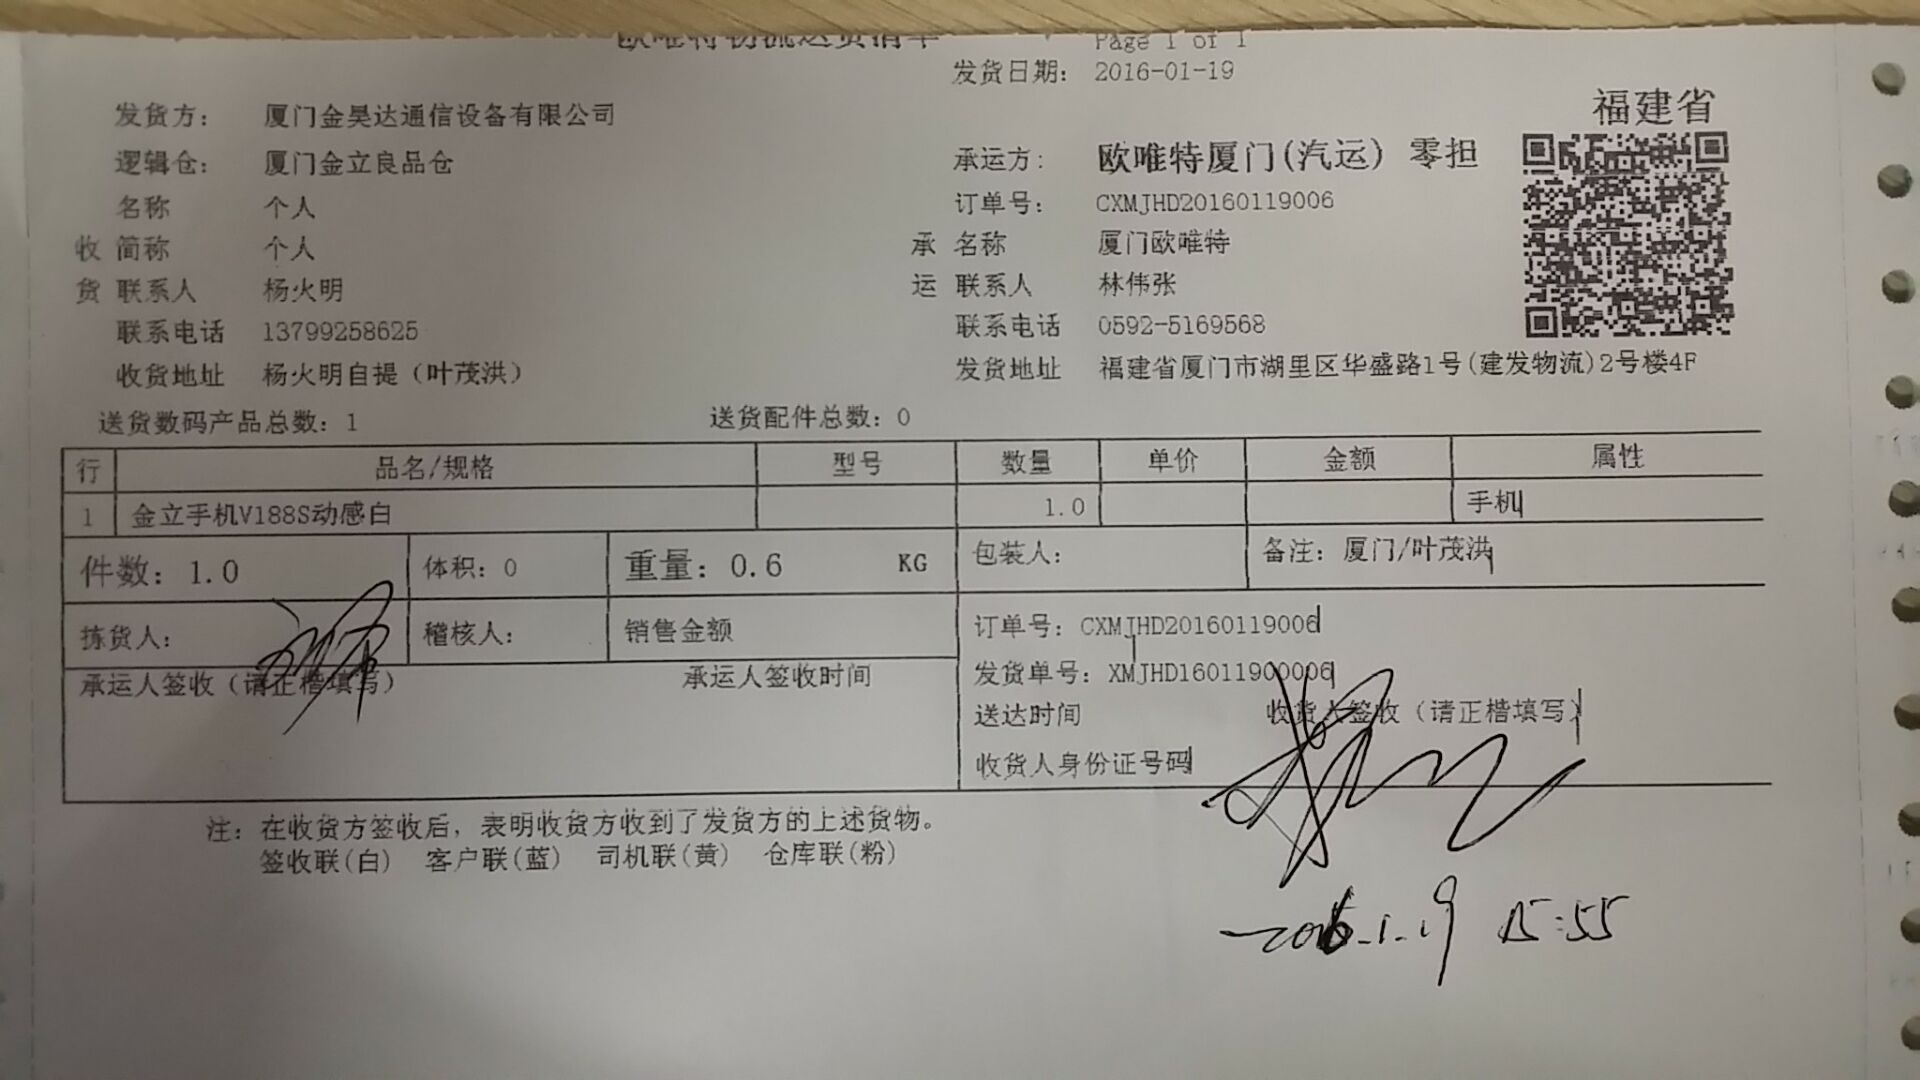 欧唯特物流送货清单
Page 1 of 1
发货日期： 2016-01-19
福建省
发货方： 厦门金昊达通信设备有限公司
逻辑仓： 厦门金立良品仓
承运方： 欧唯特厦门(汽运) 零担
名称 个人
订单号： CXMJHD20160119006
收 简称 个人
承 名称 厦门欧唯特
货 联系人 杨火明
运 联系人 林伟张
联系电话 13799258625
联系电话 0592-5169568
收货地址 杨火明自提（叶茂洪）
发货地址 福建省厦门市湖里区华盛路1号(建发物流)2号楼4F
送货数码产品总数：1 送货配件总数：0
行 品名/规格 型号 数量 单价 金额 属性
1 金立手机V188S动感白 1.0 手机
件数：1.0 体积：0 重量：0.6 KG 包装人： 备注：厦门/叶茂洪
拣货人： 稽核人： 销售金额
订单号：CXMJHD20160119006
承运人签收（请正楷填写） 承运人签收时间
发货单号：XMJHD16011900006
送达时间 收货人签收（请正楷填写）
收货人身份证号码
注：在收货方签收后，表明收货方收到了发货方的上述货物。
签收联(白) 客户联(蓝) 司机联(黄) 仓库联(粉)
2016.1.19 15:55